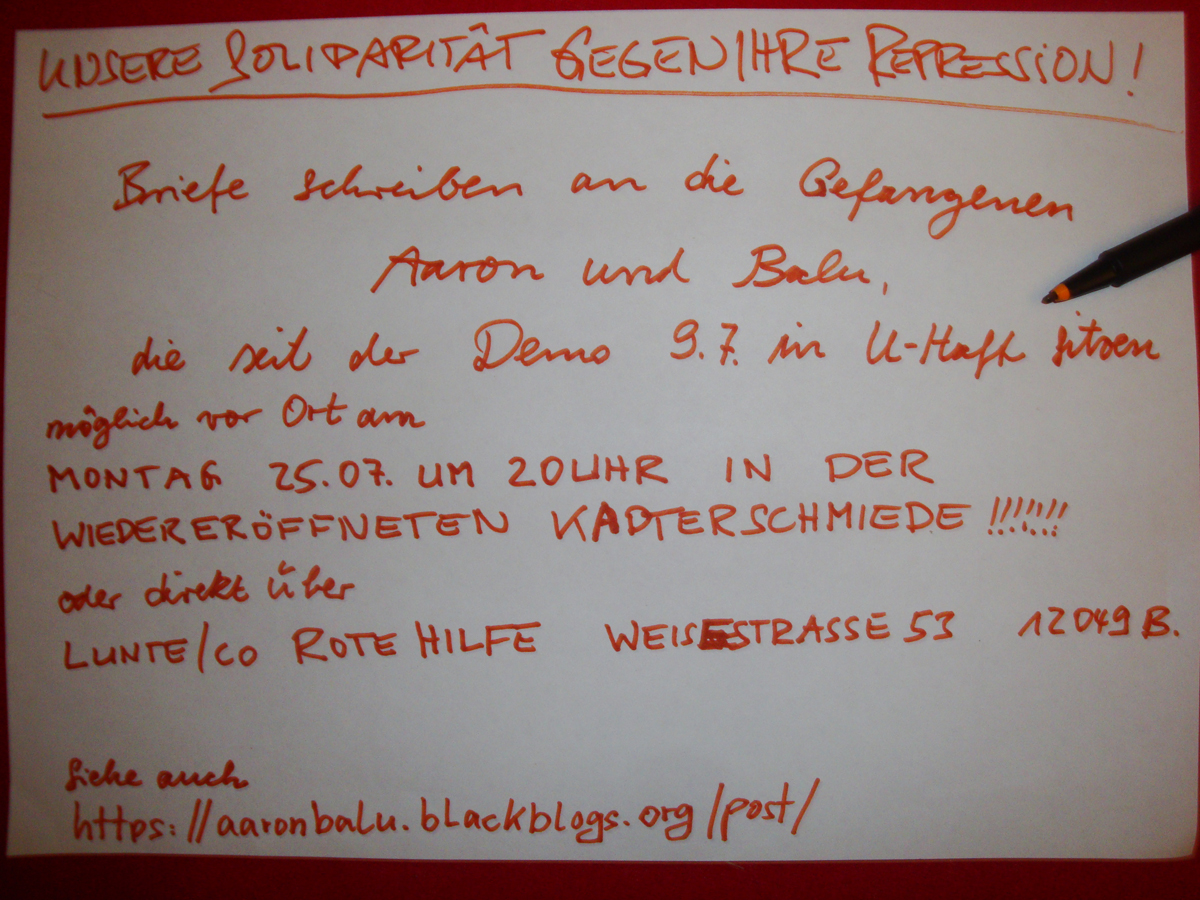 UNSERE SOLIDARITÄT GEGEN IHRE REPRESSION!
Briefe schreiben an die Gefangenen
Aaron und Balu,
die seit der Demo 9.7. in U-Haft sitzen
möglich vor Ort am
MONTAG 25.07. UM 20 UHR IN DER
WIEDERERÖFFNETEN KADTERSCHMIEDE !!!!!!!
oder direkt über
LUNTE/CO ROTE HILFE WEISESTRASSE 53 12049 B.
Siehe auch
https://aaronbalu.blackblogs.org/post/